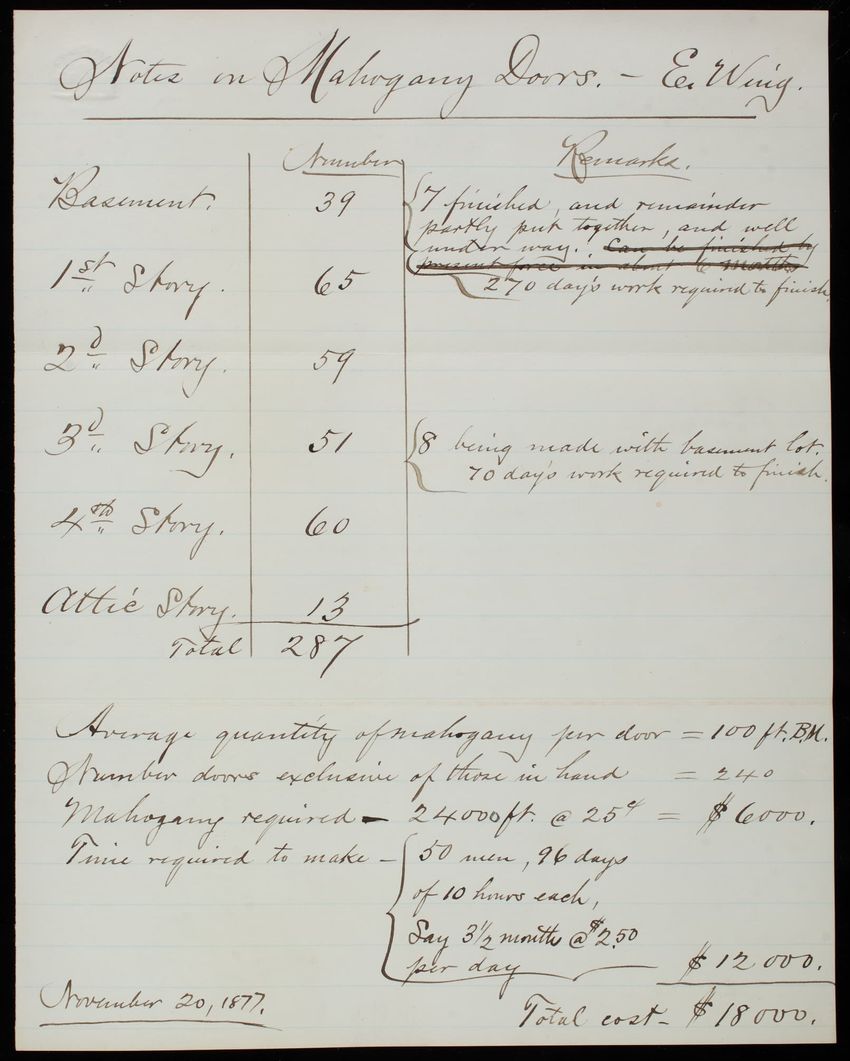 Notes on Mahogany Doors. – E. Wing.
Number Remarks.
Basement. 39 7 finished, and remainder
partly put together, and well
under way. Can be finished by
present force in about 6 months
270 day's work required to finish.
1st Story. 65
2d Story. 59
3d Story. 51 8 being made with basement lot.
70 day's work required to finish.
4th Story. 60
Attic Story. 13
Total 287
Average quantity of mahogany per door = 100 ft. B.M.
Number doors exclusive of those in hand = 240
Mahogany required – 24000 ft. @ 25¢ = $6000.
Time required to make – 50 men, 96 days
of 10 hours each,
Say 3 1/2 months @ $2.50
per day $12000.
November 20, 1877.
Total cost – $18000.